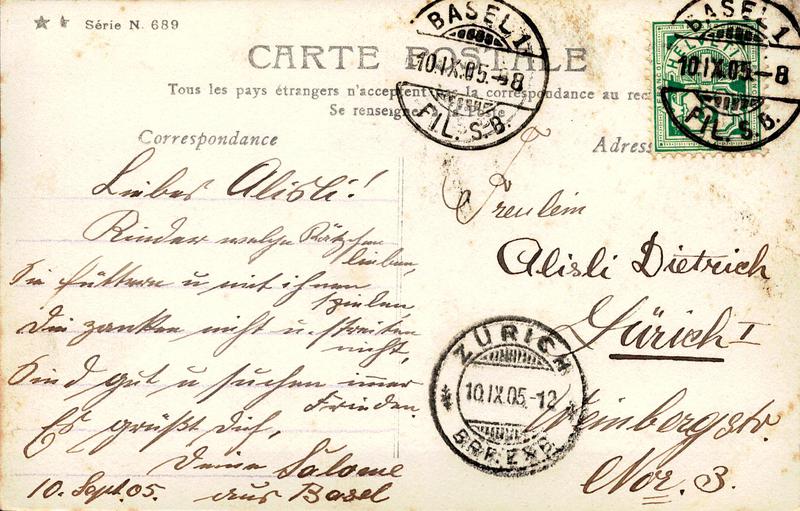 Série N. 689
CARTE POSTALE
Tous les pays étrangers n'acceptent pas la correspondance au rec
Se renseigne
Correspondance
Adress
BASEL 1
10.IX.05.-8
FIL. S.B.
HELVETIA
BASEL 1
10.IX.05.-8
FIL. S.B.
Liebes Alisli!
Kinder welche Kätzchen
lieben,
Sie füttern u mit ihnen
spielen,
Die zanken nicht u. streiten
nicht,
Sind gut u suchen immer
Frieden.
Es grüßt Dich,
Deine Salome
aus Basel
10. Sept. 05.
Freulein
Alisli Dietrich
Zürich I
Weinbergstr.
Nor. 3.
ZÜRICH
10.IX.05.-12
BRF.EXP.